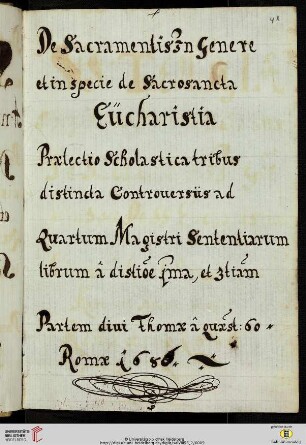 De Sacramentis In Genere
et in specie de Sacrosancta
Eücharistia
Prælectio Scholastica tribus
distincta Controversiis ad
Quartum Magistri Sententiarum
librum â distiõe p̃ma, et 3tiãm
Partem diui Thomæ â quæst: 60
Romæ 1686